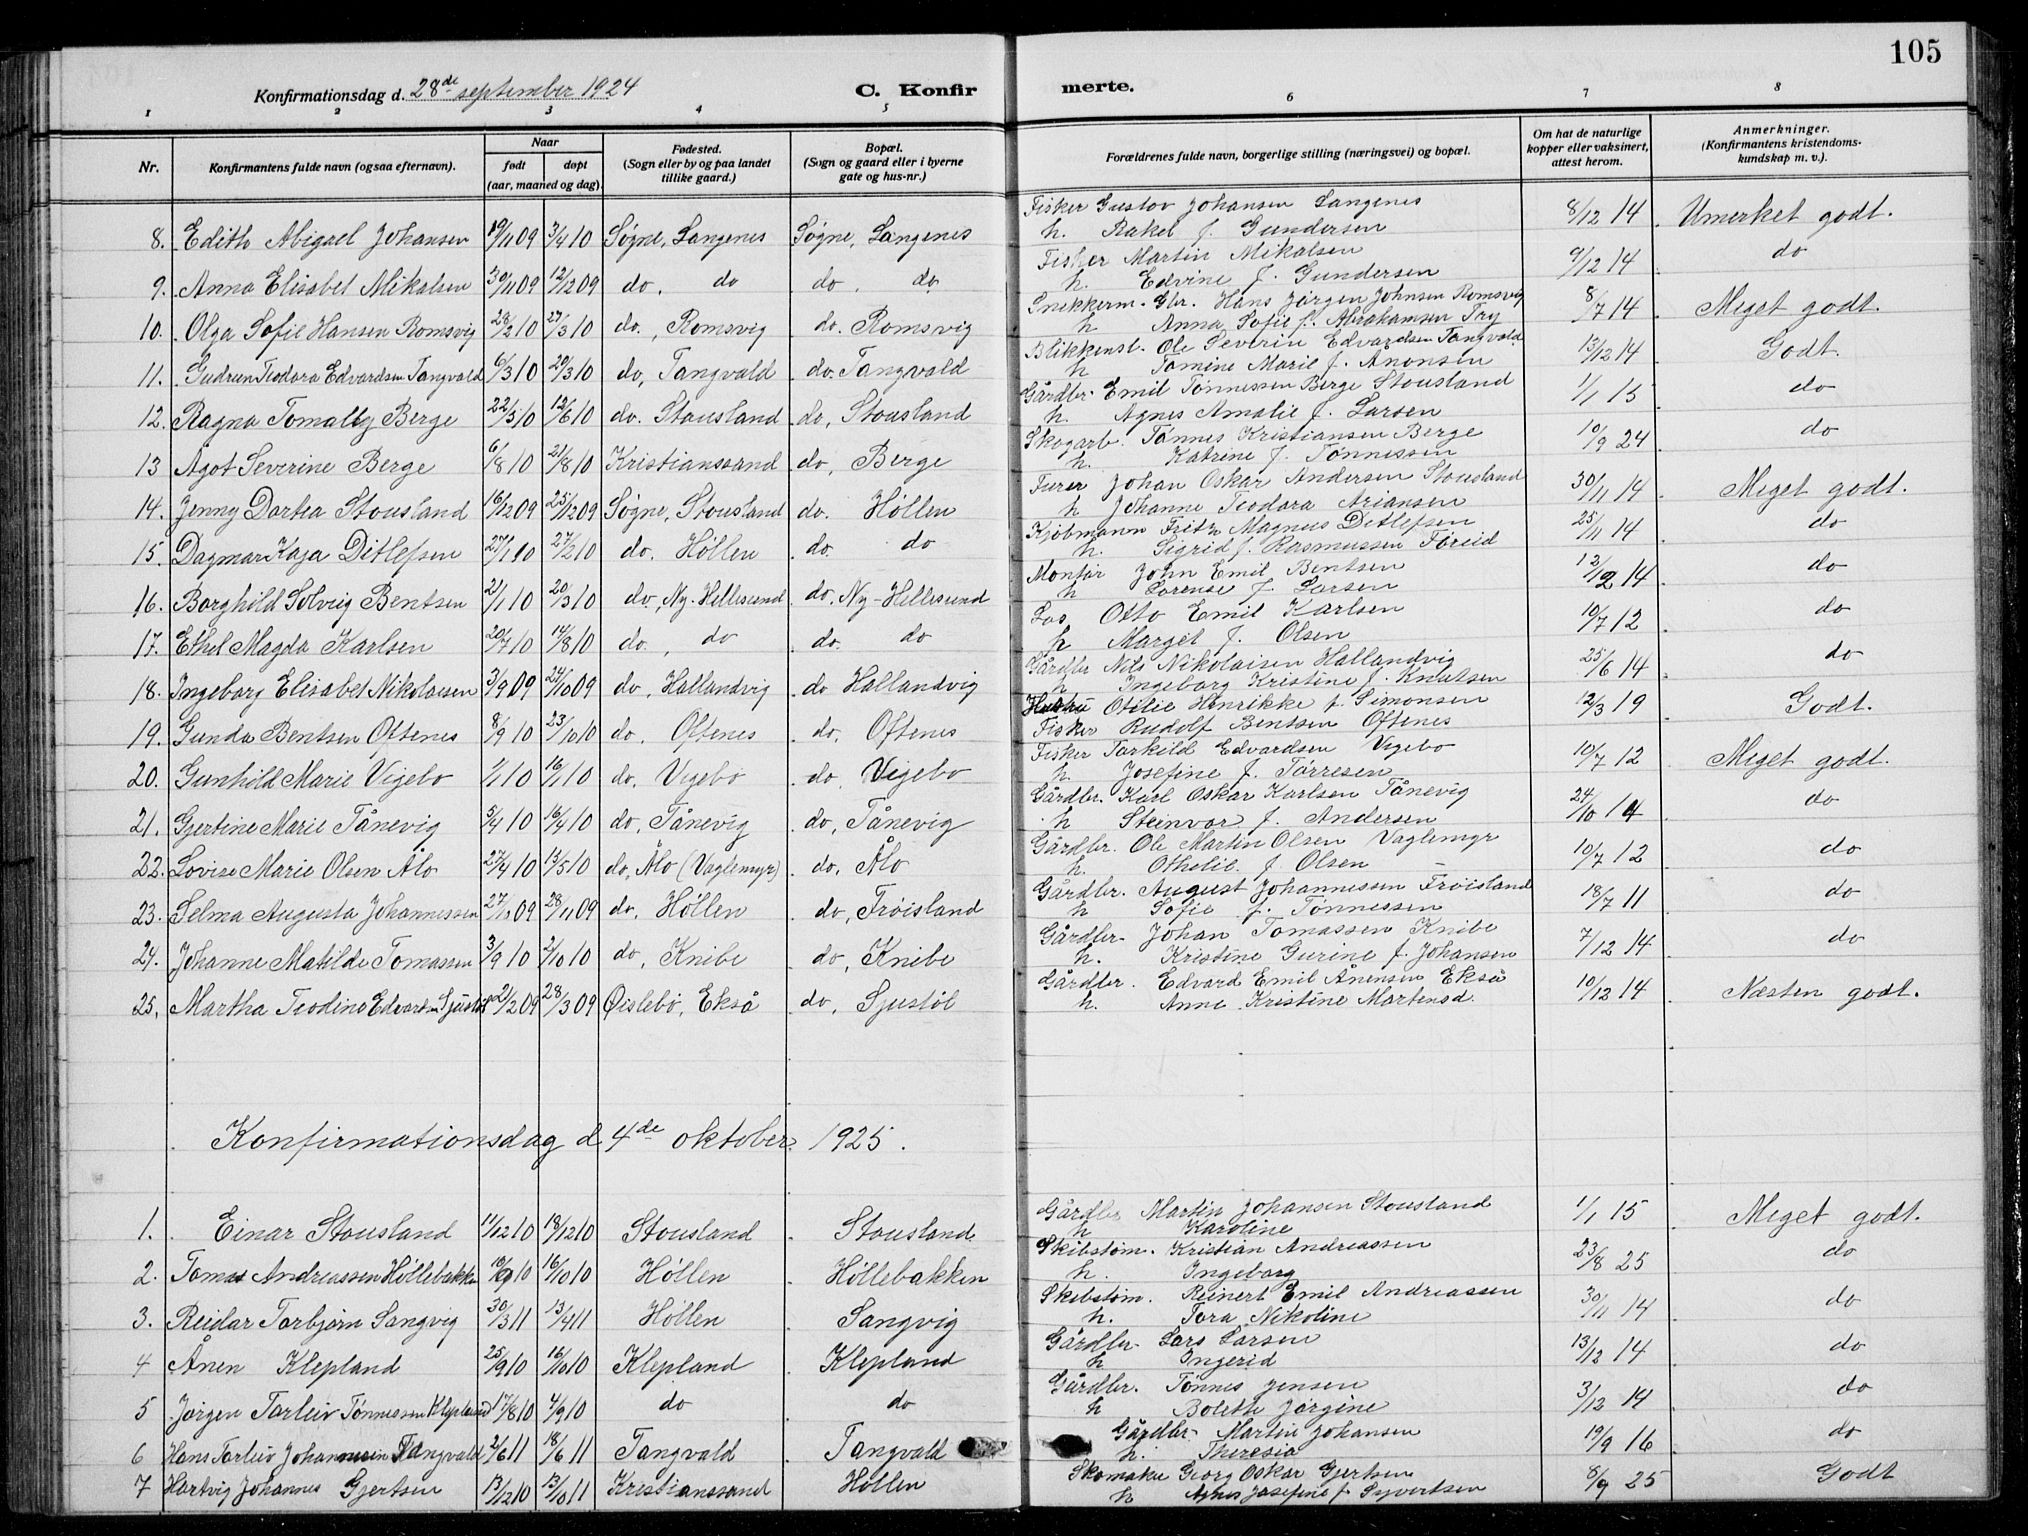 105
Konfirmationsdag d. 28de september 1924 C. Konfirmerte.
1 2 3 4 5 6 7 8
Nr. Konfirmantens fulde navn (ogsaa efternavn). Naar født døpt (aar, maaned og dag). Fødested. (Sogn eller by og paa landet tillike gaard.) Bopæl. (Sogn og gaard eller i byerne gate og hus-nr.) Forældrenes fulde navn, borgerlige stilling (næringsvei) og bopæl. Om hat de naturlige kopper eller vaksinert, attest herom. Anmerkninger. (Konfirmantens kristendomskundskap m. v.).
8. Edith Abigael Johansen 19/11 09 3/4 10 Søgne, Langenes Søgne, Langenes Fisker Gustov Johansen Langenes 8/12 14 Umerket godt.
h. Rakel f. Gundersen
9. Anna Elisabet Mikalsen 30/11 09 12/12 09 do, do do, do Fisker Martin Mikalsen 9/12 14 do
h. Edvine f. Gundersen
10. Olga Sofie Hansen Romsvig 28/2 10 27/3 10 do, Romsvig do. Romsvig Snekkerm. Gbr. Hans Jørgen Johnsen Romsvig 8/7 14 Meget godt.
h Anna Sofie f. Abrahamsen Try
11. Gudrun Teodora Edvardsen Tangvald 6/3 10 20/3 10 do, Tangvald do. Tangvald Blikkensl. Ole Severin Edvardsen Tangvald 13/12 14 Godt.
h Tomine Marie f. Anonsen
12. Ragna Tomally Berge 22/5 10 12/6 10 do. Stousland do, Stousland Gårdbr. Emil Tønnessen Berge Stousland 1/1 15 do
h. Agnes Amalie f. Larsen
13 Agot Severine Berge 6/8 10 21/8 10 Kristianssand do, Berge Skogarb. Tønnes Kristiansen Berge 10/9 24 do
h. Katrine f. Tønnessen
14. Jenny Dortea Stousland 16/12 09 25/12 09 Søgne, Stousland do. Høllen Furer Johan Oskar Andersen Stousland 30/11 14 Meget godt.
h Johanne Teodora Ariansen
15. Dagmar Kaja Ditlefsen 27/1 10 27/2 10 do, Høllen do. do Kjøbmann Fritz Magnus Ditlefsen 25/11 14 do
h. Sigrid f. Rasmussen Føreid
16. Borghild Solveig Bentsen 21/1 10 20/3 10 do, Ny-Hellesund do, Ny-Hellesund Montør John Emil Bentsen 12/12 14 do
h Lorense f. Larsen
17. Ethel Magda Karlsen 20/7 10 14/8 10 do. do do. do Los Otto Emil Karlsen 10/7 12 do
h Marget f. Olsen
18. Ingeborg Elisabet Nikolaisen 3/9 09 24/10 09 do, Hallandvig do Hallandvig Gårdbr Nils Nikolaisen Hallandvig 25/6 14 do
h Ingeborg Kristine f. Knutsen
19. Gunda Bentsen Oftenes 8/9 10 23/10 10 do, Oftenes do, Oftenes Hustru Otilie Henrikke f. Simonsen 12/3 19 Godt.
Fisker Rudolf Bentsen Oftenes
20. Gunhild Marie Vigebo 1/1 10 16/1 10 do, Vigebo do, Vigebo Fisker Tarkild Edvardsen Vigebo 10/7 12 Meget godt.
h. Josefine f. Tørresen
21. Gjertine Marie Tånevig 5/4 10 16/4 10 do, Tånevig do, Tånevig Gårdbr. Karl Oskar Karlsen Tånevig 24/10 14 do
h Steinvor f. Andersen
22. Lovise Marie Olsen Ålo 27/4 10 13/5 10 do, Ålo (Vaglemyr) do. Ålo Gårdbr. Ole Martin Olsen Vaglemyr 10/7 12 do
h. Othelie f. Olsen
23. Selma Augusta Johannessen 27/10 09 28/11 09 do, Høllen do, Frøisland Gårdbr. August Johannessen Frøisland 18/7 11 do
h Sofie f. Tønnessen
24. Johanne Matilde Tomassen 3/9 10 2/10 10 do, Knibe do, Knibe Gårdbr. Johan Tomassen Knibe 7/12 14 do
h. Kristine Gurine f. Johansen
25. Martha Teodine Edvartsen Sjustøl 21/2 09 28/3 09 Øislebø, Ekså do, Sjustøl Gårdbr. Edvard Emil Ånensen Ekså 10/12 14 Næsten godt.
h. Anne Kristine Martensd.
Konfirmationsdag d. 4de oktober 1925.
1. Einar Stousland 11/12 10 18/12 10 Stousland Stousland Gårdbr Martin Johansen Stousland 1/1 15 Meget godt.
h Karoline
2. Tomas Andreassen Høllebakken 10/9 10 16/10 10 Høllen Høllebakken Skibstøm. Kristian Andreassen 23/8 25 do
h. Ingeborg
3. Reidar Torbjørn Sangvig 30/3 11 13/4 11 Høllen Sangvig Skibstøm. Reinert Emil Andreassen 30/11 14 do
h. Tora Nikoline
4 Ånen Klepland 25/9 10 16/10 10 Klepland Klepland Gårdbr Lars Larsen 13/12 14 do
h Ingerid
5 Jørgen Tarleiv Tønnessen Klepland 17/8 10 4/9 10 do do Gårdbr. Tønnes Jensen 3/12 14 do
h Bolette Jørgine
6 Hans Tarleiv Johannesen Tangvald 2/6 11 18/6 11 Tangvald Tangvald Gårdbr Martin Johansen 19/9 16 do
h. Theresia
7 Hartvig Johannes Gjertsen 13/12 10 13/10 11 Kristianssand Høllen Skomaker Georg Oskar Gjertsen 8/9 25 Godt
h Agnes Josefine f. Syvertsen